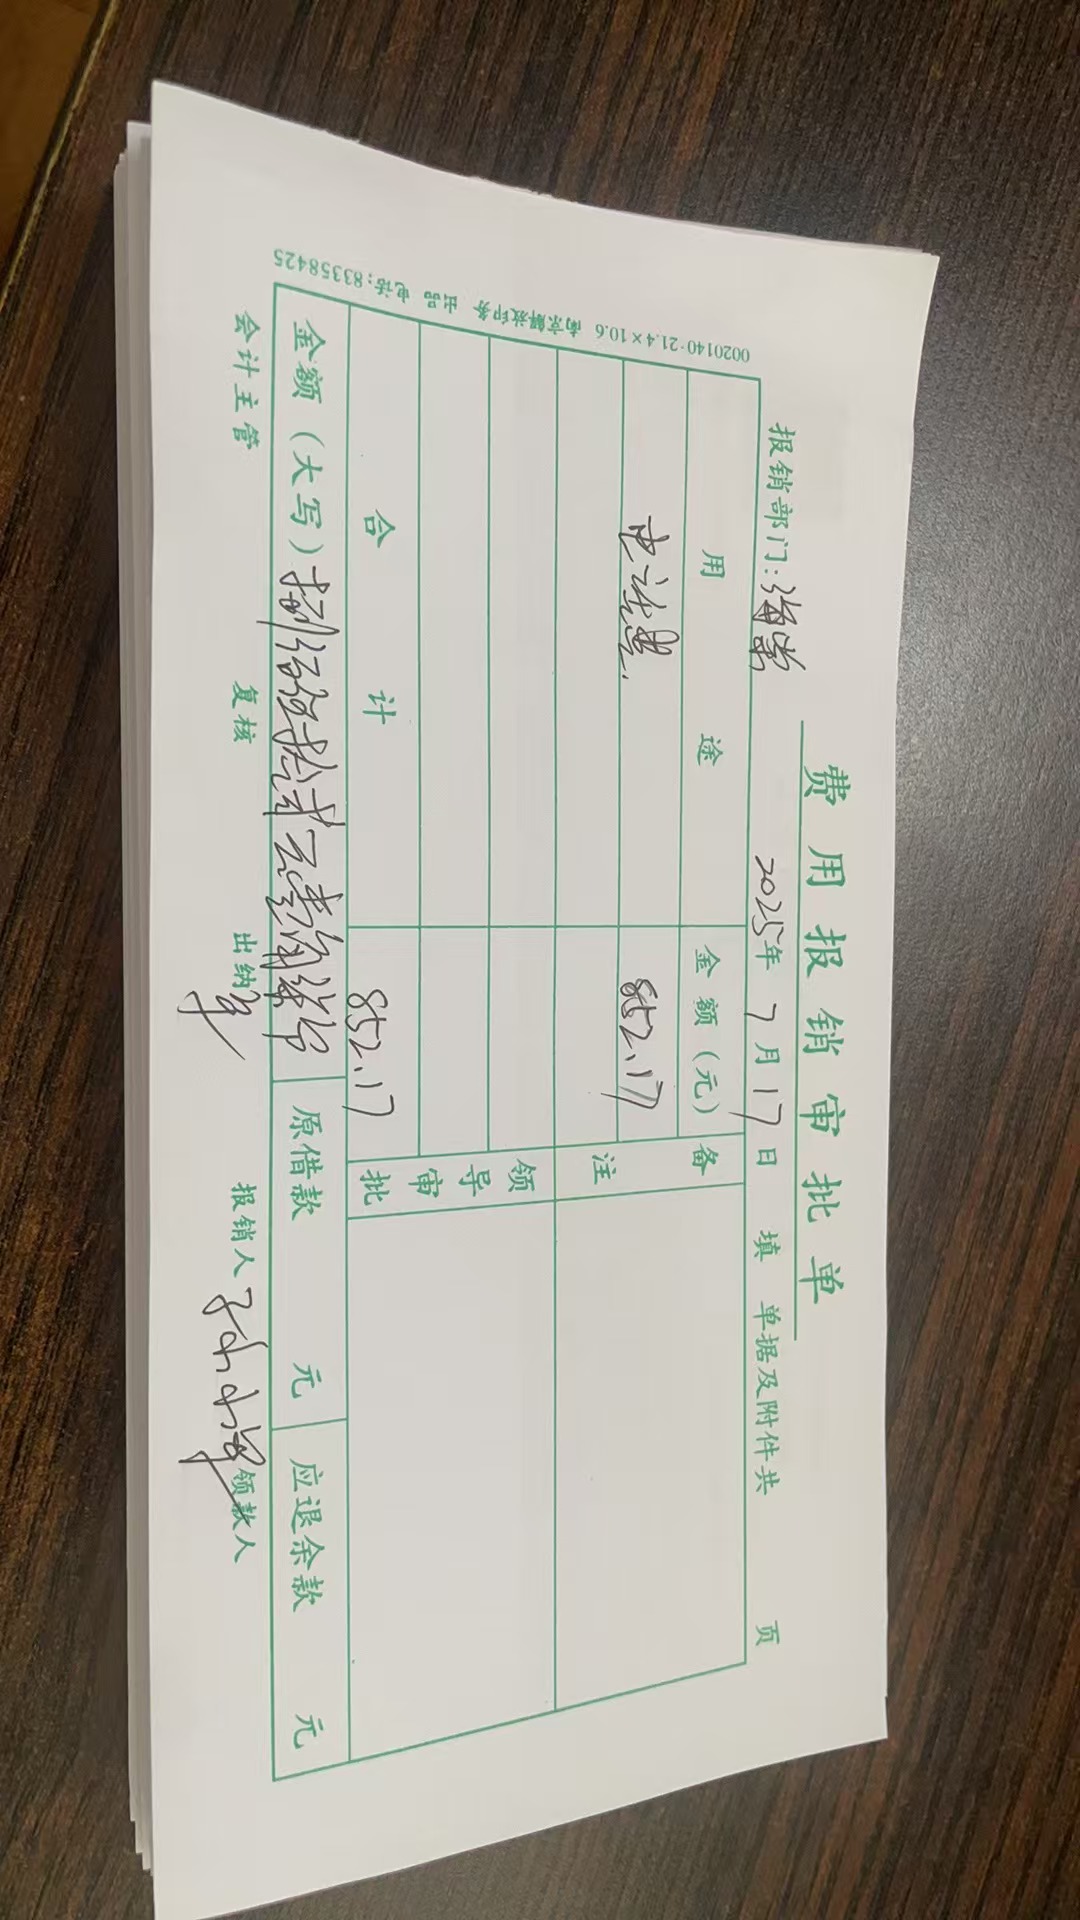 费用报销审批单
报销部门：海棠 2025年7月17日 填 单据及附件共 页
用途 金额（元） 备注
电话费 852.17
领导审批
合计 852.17
金额（大写）捌佰伍拾贰元壹角柒分 原借款 元 应退余款 元
会计主管 复核 出纳 报销人 领款人
0020140·21.4×10.6 南京解放印务 出品 电话：83358425